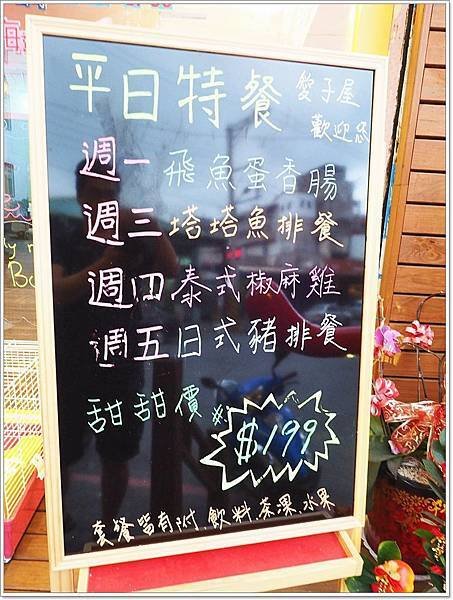 平日特餐
愛子屋
歡迎您
週一 飛魚蛋香腸
週三 塔塔魚排餐
週四 泰式椒麻雞
週五 日式豬排餐
甜甜價
$199
套餐皆有附,飲料.茶凍.水果